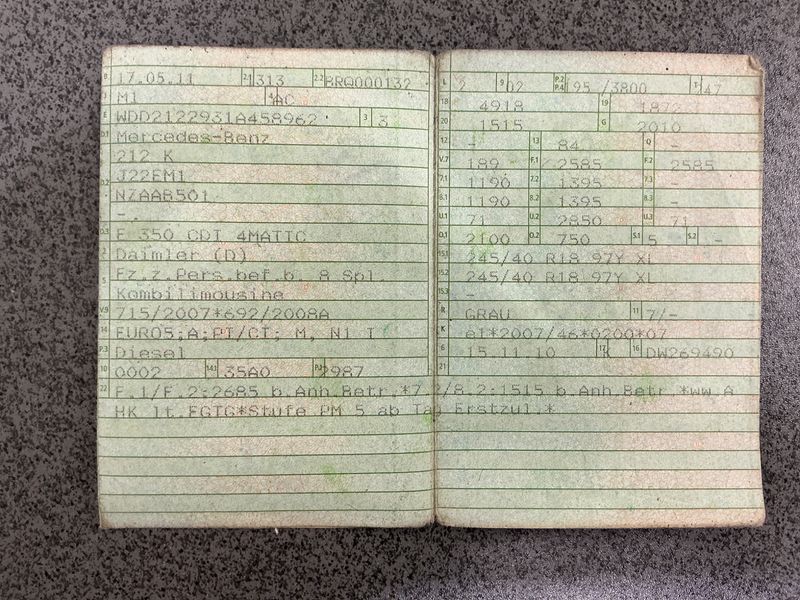 B 17.05.11 2.1 1313 2.2 BRQ000132
J M1 4 AC
E WDD2122931A458962 3 3
D.1 Mercedes-Benz
212 K
D.2 J22EM1
NZAAB501
-
D.3 E 350 CDI 4MATIC
2 Daimler (D)
5 Fz.z.Pers.bef.b. 8 Spl.
Kombilimousine
V.9 715/2007*692/2008A
14 EURO5;A;PI/CI; M, N1 I
P.3 Diesel
10 0002 14.1 35A0 P.1 2987
22 F.1/F.2:2685 b.Anh.Betr.*7.2/8.2:1515 b.Anh.Betr.*ww.A
HK lt.EGTG*Stufe PM 5 ab Tag Erstzul.*
L 2 9 02 P.2 P.4 195 /3800 T 247
18 4918 19 1872
20 1515 G 2010
12 - 13 84 Q -
V.7 189 F.1 2585 F.2 2585
7.1 1190 7.2 1395 7.3 -
8.1 1190 8.2 1395 8.3 -
U.1 71 U.2 2850 U.3 71
O.1 2100 O.2 750 S.1 5 S.2 -
15.1 245/40 R18 97Y XL
15.2 245/40 R18 97Y XL
15.3 -
R GRAU 11 7/-
K e1*2007/46*0200*07
6 15.11.10 17 K 16 DW269490
21